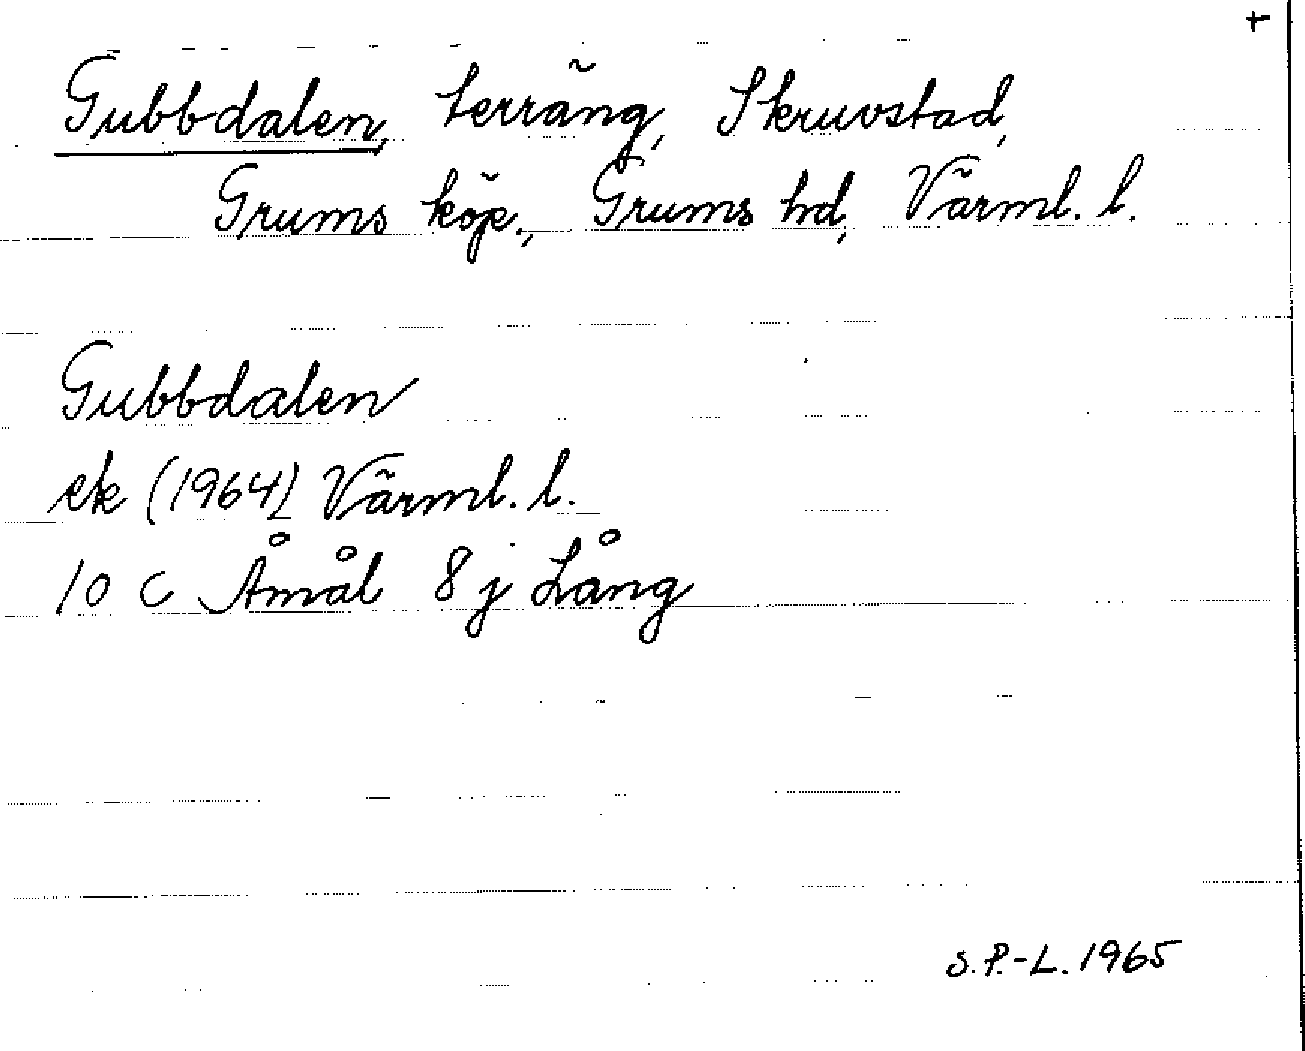 +
Gubbdalen, terräng, Skruvstad,
Grums köp., Grums hd, Värml. l.
Gubbdalen
ek (1964) Värml. l.
10 C Åmål 8 j Lång
S.P.-L. 1965